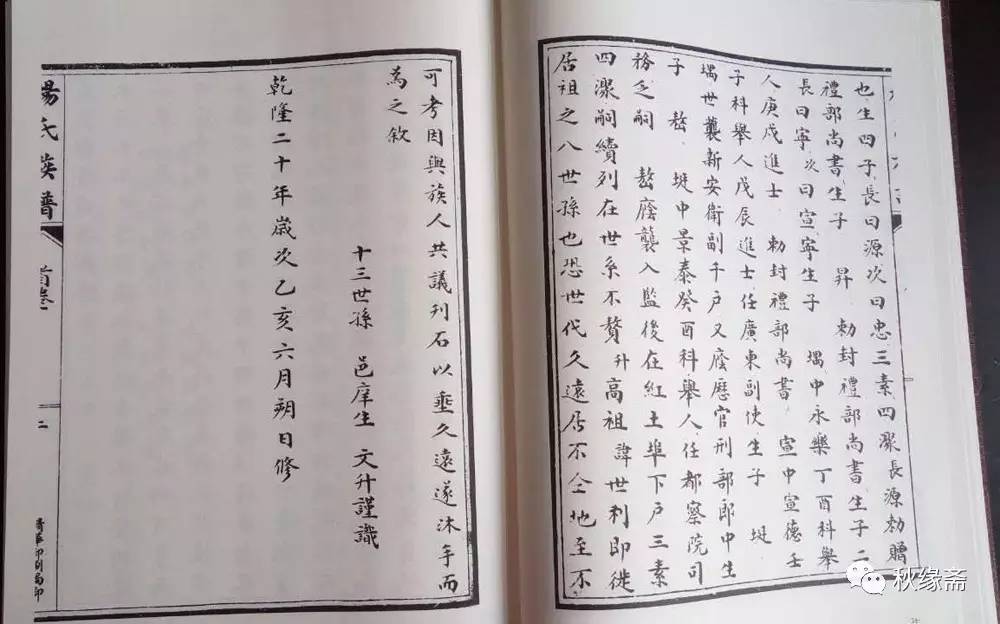 也生四子長曰源次曰忠三素四潔長源勅贈
禮部尚書生子 昇 勅封禮部尚書生子二
長曰寧次曰宣寧生子 堣中永樂丁酉科舉
人庚戌進士 勅封禮部尚書 宣中宣德壬
子科舉人戊辰進士任廣東副使生子 珽
堣世襲新安衛副千戶又廕歷官刑部郎中生
子 嶅 珽中景泰癸酉科舉人任都察院司
務乏嗣 嶅廕襲入監後在紅土埠下戶三素
四潔嗣續列在世系不贅升高祖諱世利即徙
居祖之八世孫也恐世代久遠居不仝地至不
可考因與族人共議刊石以垂久遠遂沐手而
為之敘
十三世孫 邑庠生 文升謹識
乾隆二十年歲次乙亥六月朔日修
楊氏族譜
首卷
二
秋缘斋